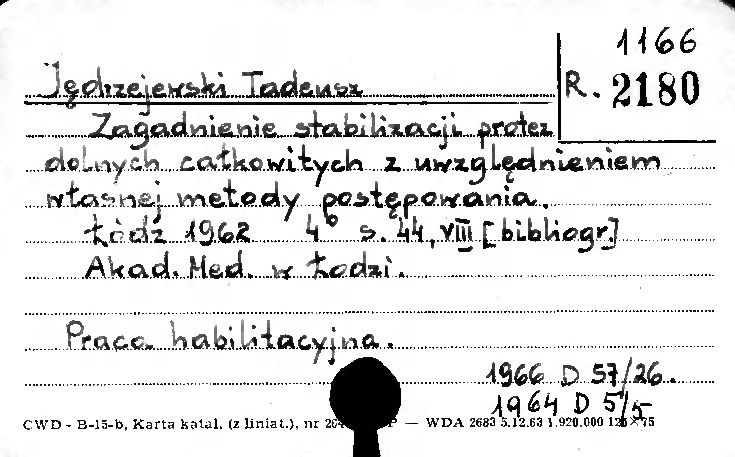 1166
Jędrzejewski Tadeusz R. 2180
Zagadnienie stabilizacji protez
dolnych całkowitych z uwzględnieniem
własnej metody postępowania.
Łódź 1962 4° s. 44, VIII [bibliogr.]
Akad. Med. w Łodzi.
Praca habilitacyjna.
1966 D 57/26.
1964 D 5/5
CWD - B-15-b, Karta katal. (z liniat.), nr — WDA 2683 5.12.63 1.920.000